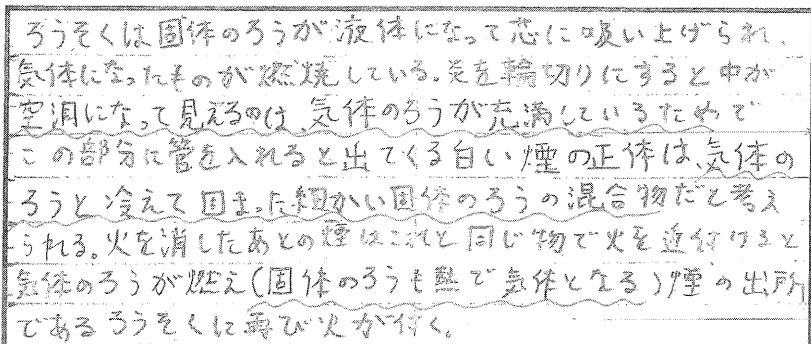 ろうそくは固体のろうが液体になって芯に吸い上げられ、
気体になったものが燃焼している。炎を輪切りにすると中が
空洞になって見えるのは、気体のろうが充満しているためで
この部分に管を入れると出てくる白い煙の正体は、気体の
ろうと冷えて固まった細かい固体のろうの混合物だと考え
られる。火を消したあとの煙はこれと同じ物で火を近付けると
気体のろうが燃え(固体のろうも熱で気体となる)煙の出所
であるろうそくに再び火が付く。